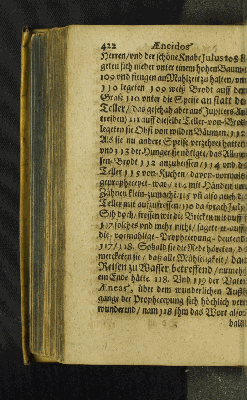 422 Æneidos
Herren/ und der schöne Knabe Julus 108 l
geten sich nieder unter einem hohem Baum/
109 und fiengen an Mahlzeit zu halten/
110 legeten 109 weiß Brodt auff dem
Graß 110 unter die Speise an statt der
Teller/ das geschah aber aus Jupiters
111 auff dieselbe Teller von Brodt
legeten sie Obst von wilden Bäumen/ 112
Als sie nu andere Speise verzehret hatten
und 113 der Hunger sie nötiget/ das
Brodt 112 anzubeissen/ 114 und
Teller 115 von Kuchen/ davon vormals
gepropheceyet war/ 114 mit Händen und
Zähnen klein zumachen 115 und also auch
Teller mit auffzufressen/ 110 da sprach Julus
Sih doch/ fressen wir die Brücken mit auff
117 solches und mehr nicht/ sagete er
die vormahlige Propheceyung
117/118. Sobald sie die Rede höreten/
merckten sie/ daß alle Mühseligkeit/
Reisen zu Wasser betreffend/ nunmehr
ein Ende hätte. 118. Und 119 der Vater
Æneas, über dem wunderlichen
gange der Propheceyung sich höchlich
wunderend/ nam 118 ihm das Wort also
bald